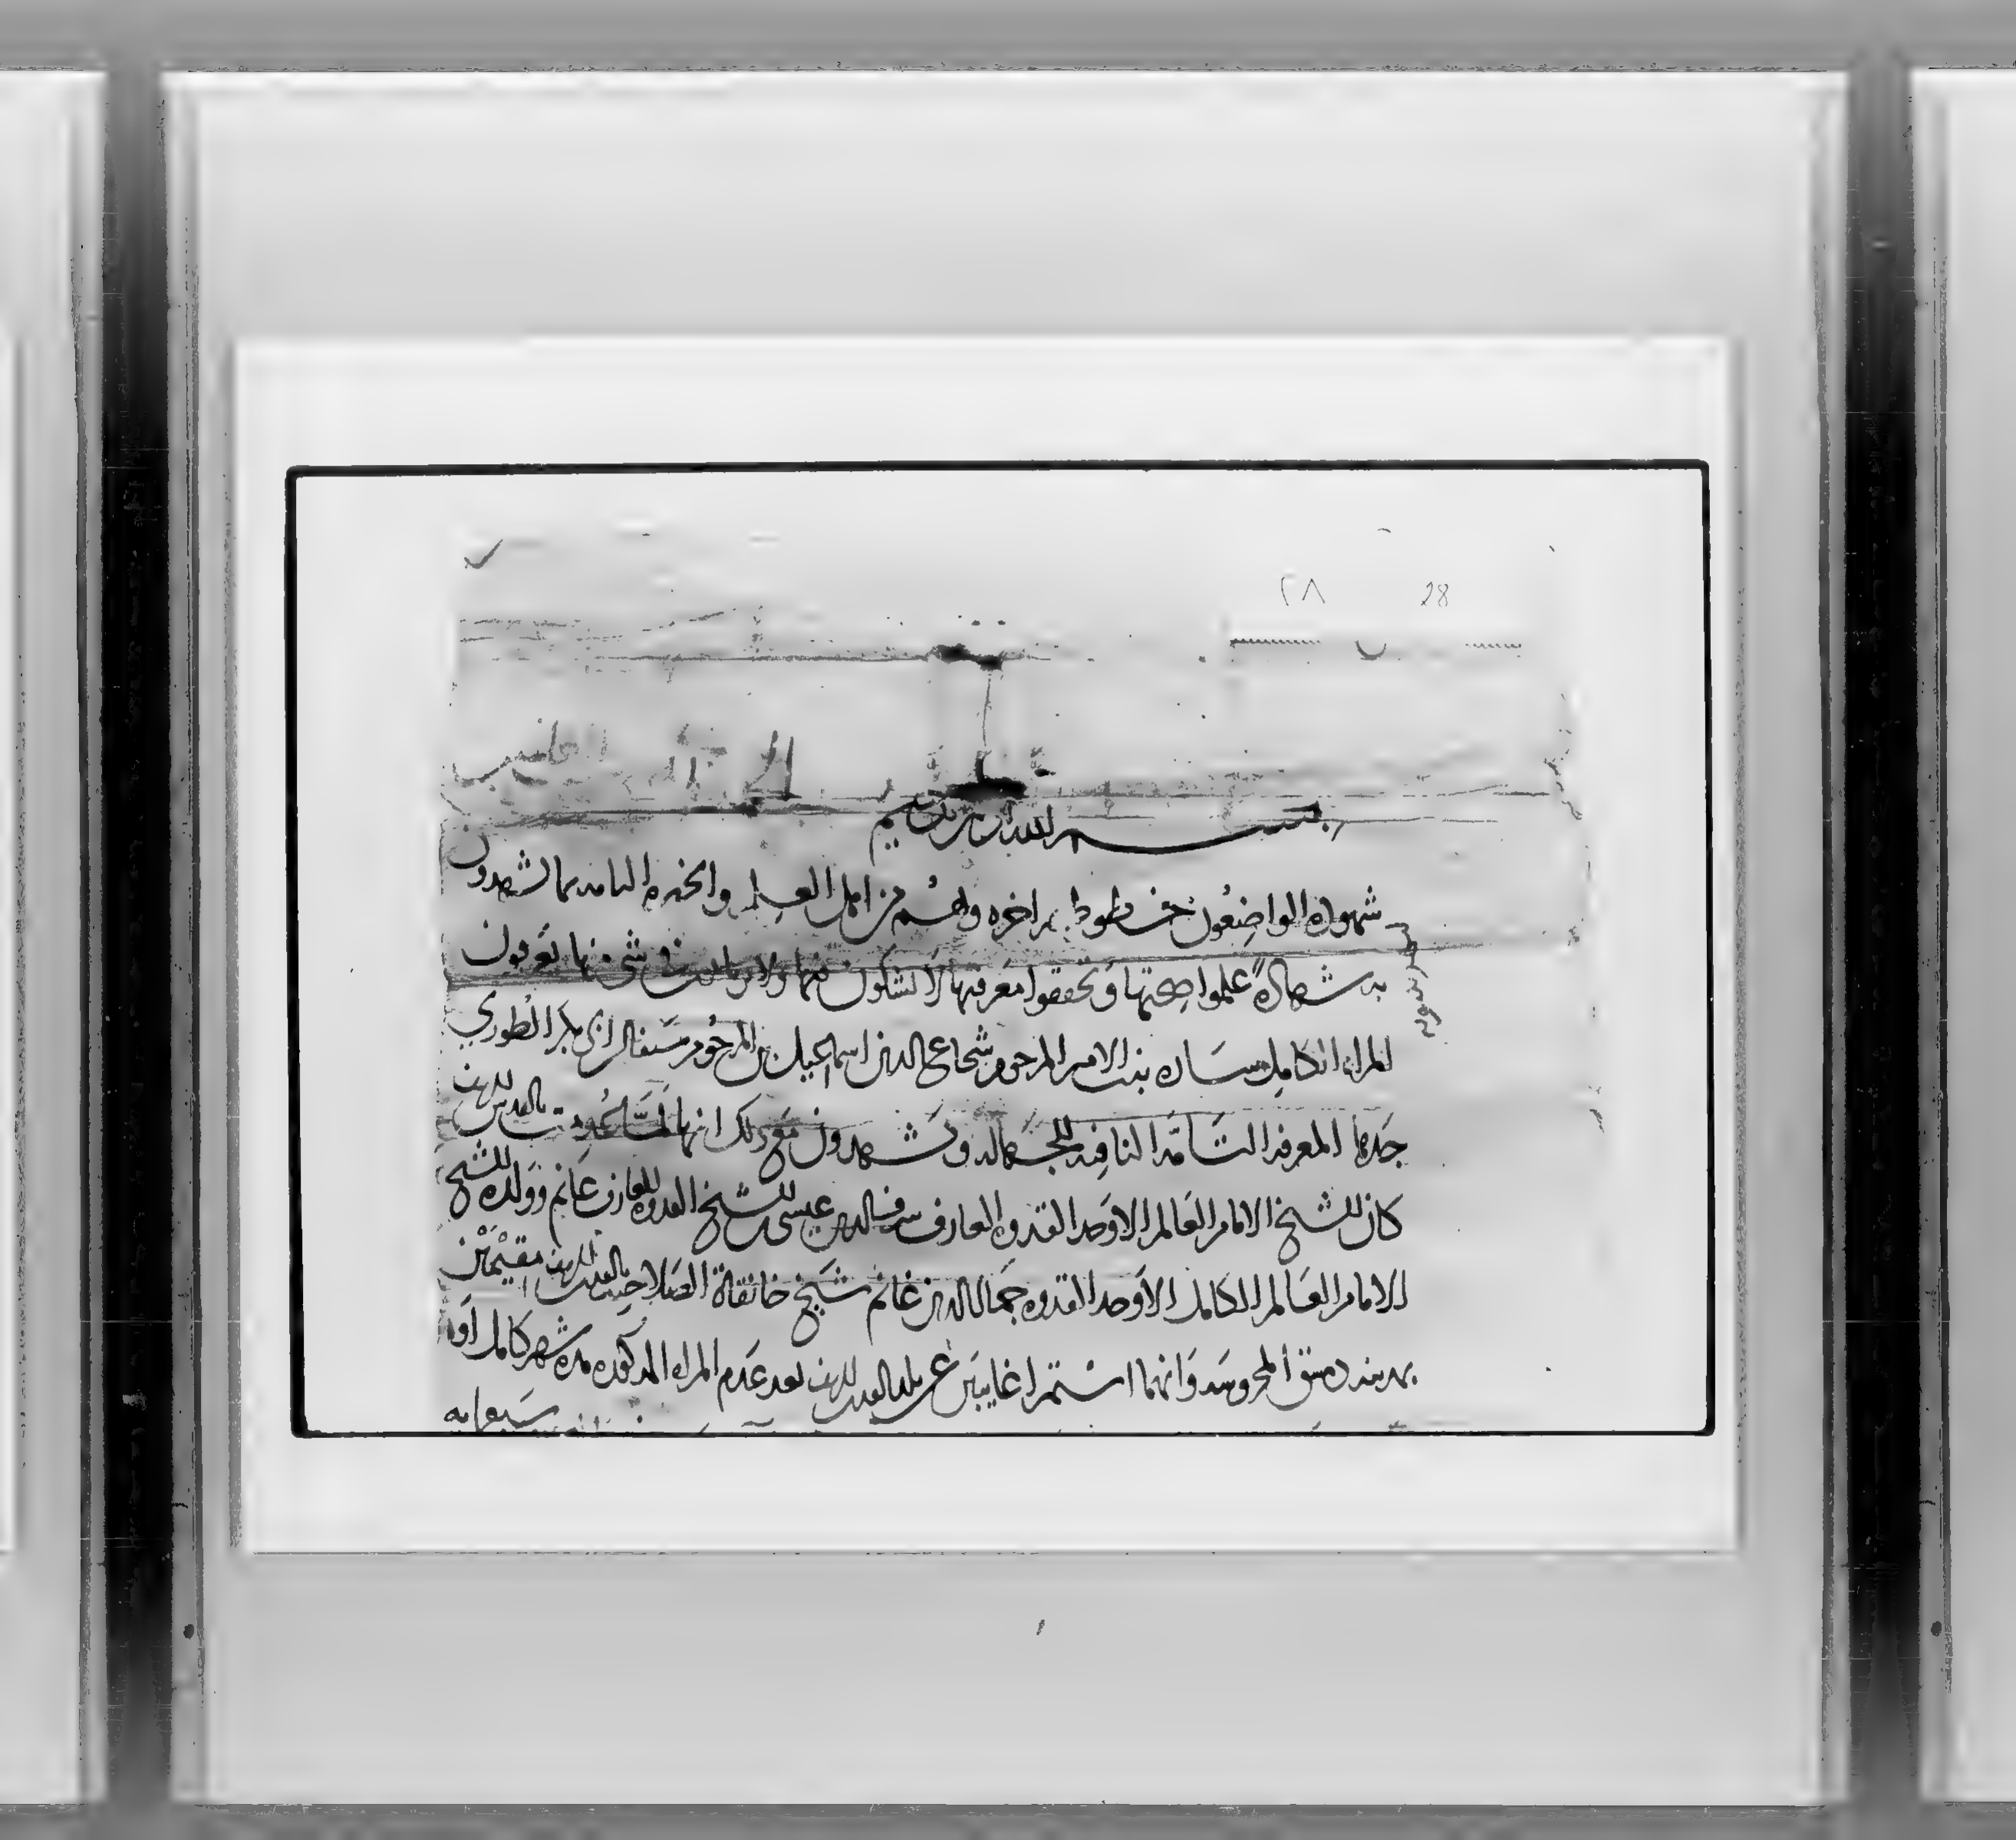 ٢٨ 28
بسم الله الرحمن الرحيم
شهوده الواضعون خطوطهم اخره وهم من اهل العلم والخبره التامه بما يشهدون
به شهادة علموا صحتها وتحققوا معرفتها لا يشكون فيها ولا يرتابون في شي منها يعرفون
المراه الكامل ساره بنت الامير المرحوم شجاع الدين اسماعيل بن المرحوم سنقر ابي بكر الطوري
جدها المعرفه التامه النافيه للجهاله ويشهدون مع ذلك انها لما عدمت بالقدس الشريف
كان الشيخ الامام العالم الاوحد القدوه العارف شرف الدين عيسى بن الشيخ القدوه العارف غانم وولده الشيخ
الامام العالم الكامل الاوحد القدوه جمال الدين غانم شيخ خانقاة الصلاحيه بالقدس الشريف مقيمين
بمدينه دمشق المحروسه وانهما استمرا غايبين عن بلد القدس الشريف بعد عدم المراه المذكوره مده شهر كامل اوله
سبعمايه